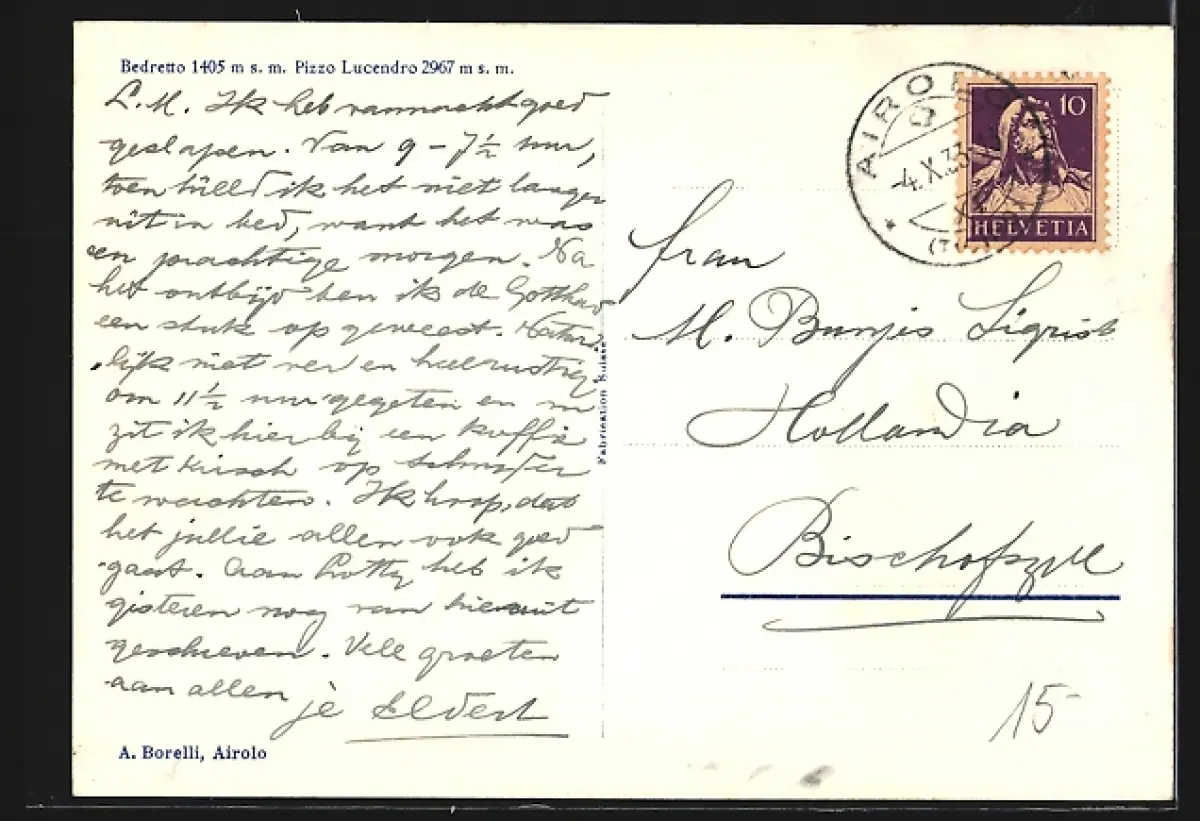 Bedretto 1405 m s. m. Pizzo Lucendro 2967 m s. m.
L. M. Ik heb vannacht goed
geslapen. Van 9 – 7½ uur,
toen hield ik het niet langer
uit in bed, want het was
een prachtige morgen. Na
het ontbijt ben ik de Gotthard
een stuk op geweest. Natuur
lijk niet ver en heel rustig
om 11½ uur gegeten en nu
zit ik hier bij een koffie
met kirsch op
te wachten. Ik hoop, dat
het jullie allen ook goed
gaat. Aan Lotty heb ik
gisteren nog van hieruit
geschreven. Vele groeten
aan allen
je Eldert
A. Borelli, Airolo
Fabrication Suisse
AIROLO
-4.X.33
10
HELVETIA
Frau
M. Bunjes Sigrist
Hollandia
Bischofszell
15-